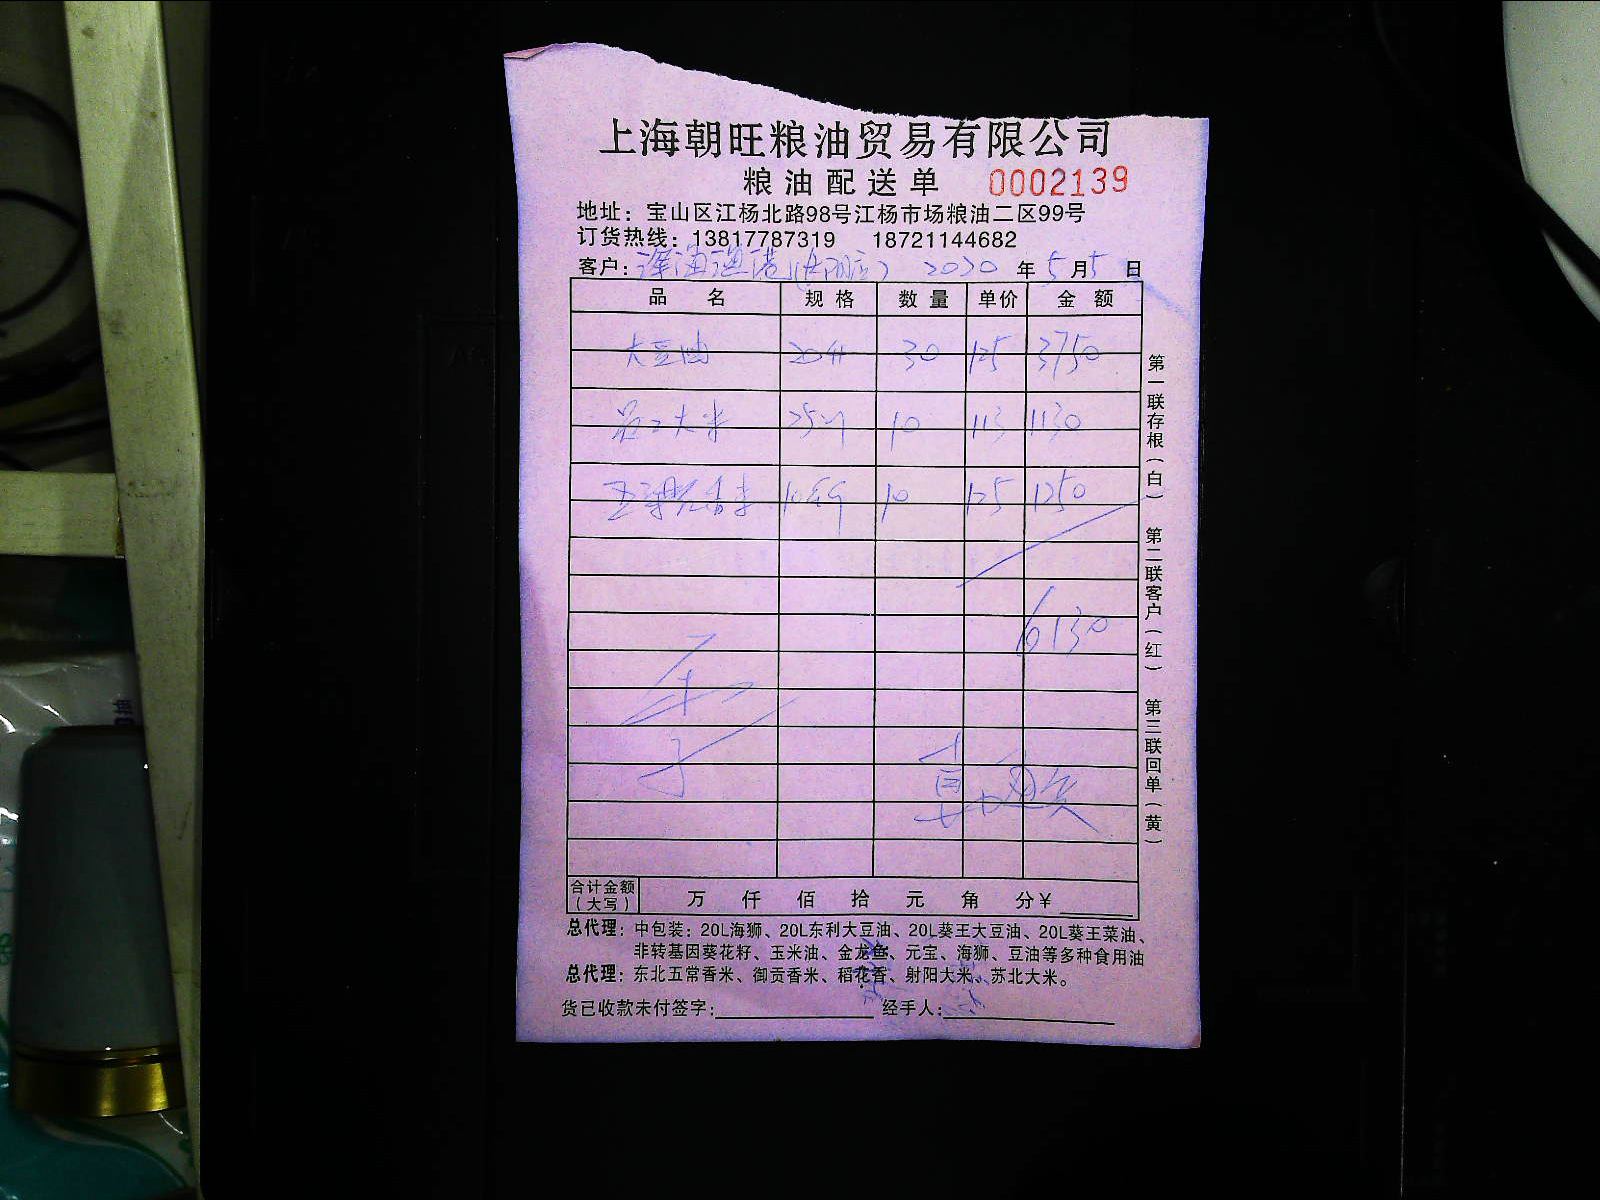 上海朝旺粮油贸易有限公司
粮油配送单 0002139
地址：宝山区江杨北路98号江杨市场粮油二区99号
订货热线：13817787319 18721144682
客户： 2020 年 5 月 5 日
品 名 规 格 数 量 单价 金 额
大豆油 20升 30 125 3750
大米 10 113 1130
10 125 1250
6130
合计金额（大写） 万 仟 佰 拾 元 角 分￥
总代理：中包装：20L海狮、20L东利大豆油、20L葵王大豆油、20L葵王菜油、
非转基因葵花籽、玉米油、金龙鱼、元宝、海狮、豆油等多种食用油
总代理：东北五常香米、御贡香米、稻花香、射阳大米、苏北大米。
货已收款未付签字： 经手人：
第一联存根（白） 第二联客户（红） 第三联回单（黄）